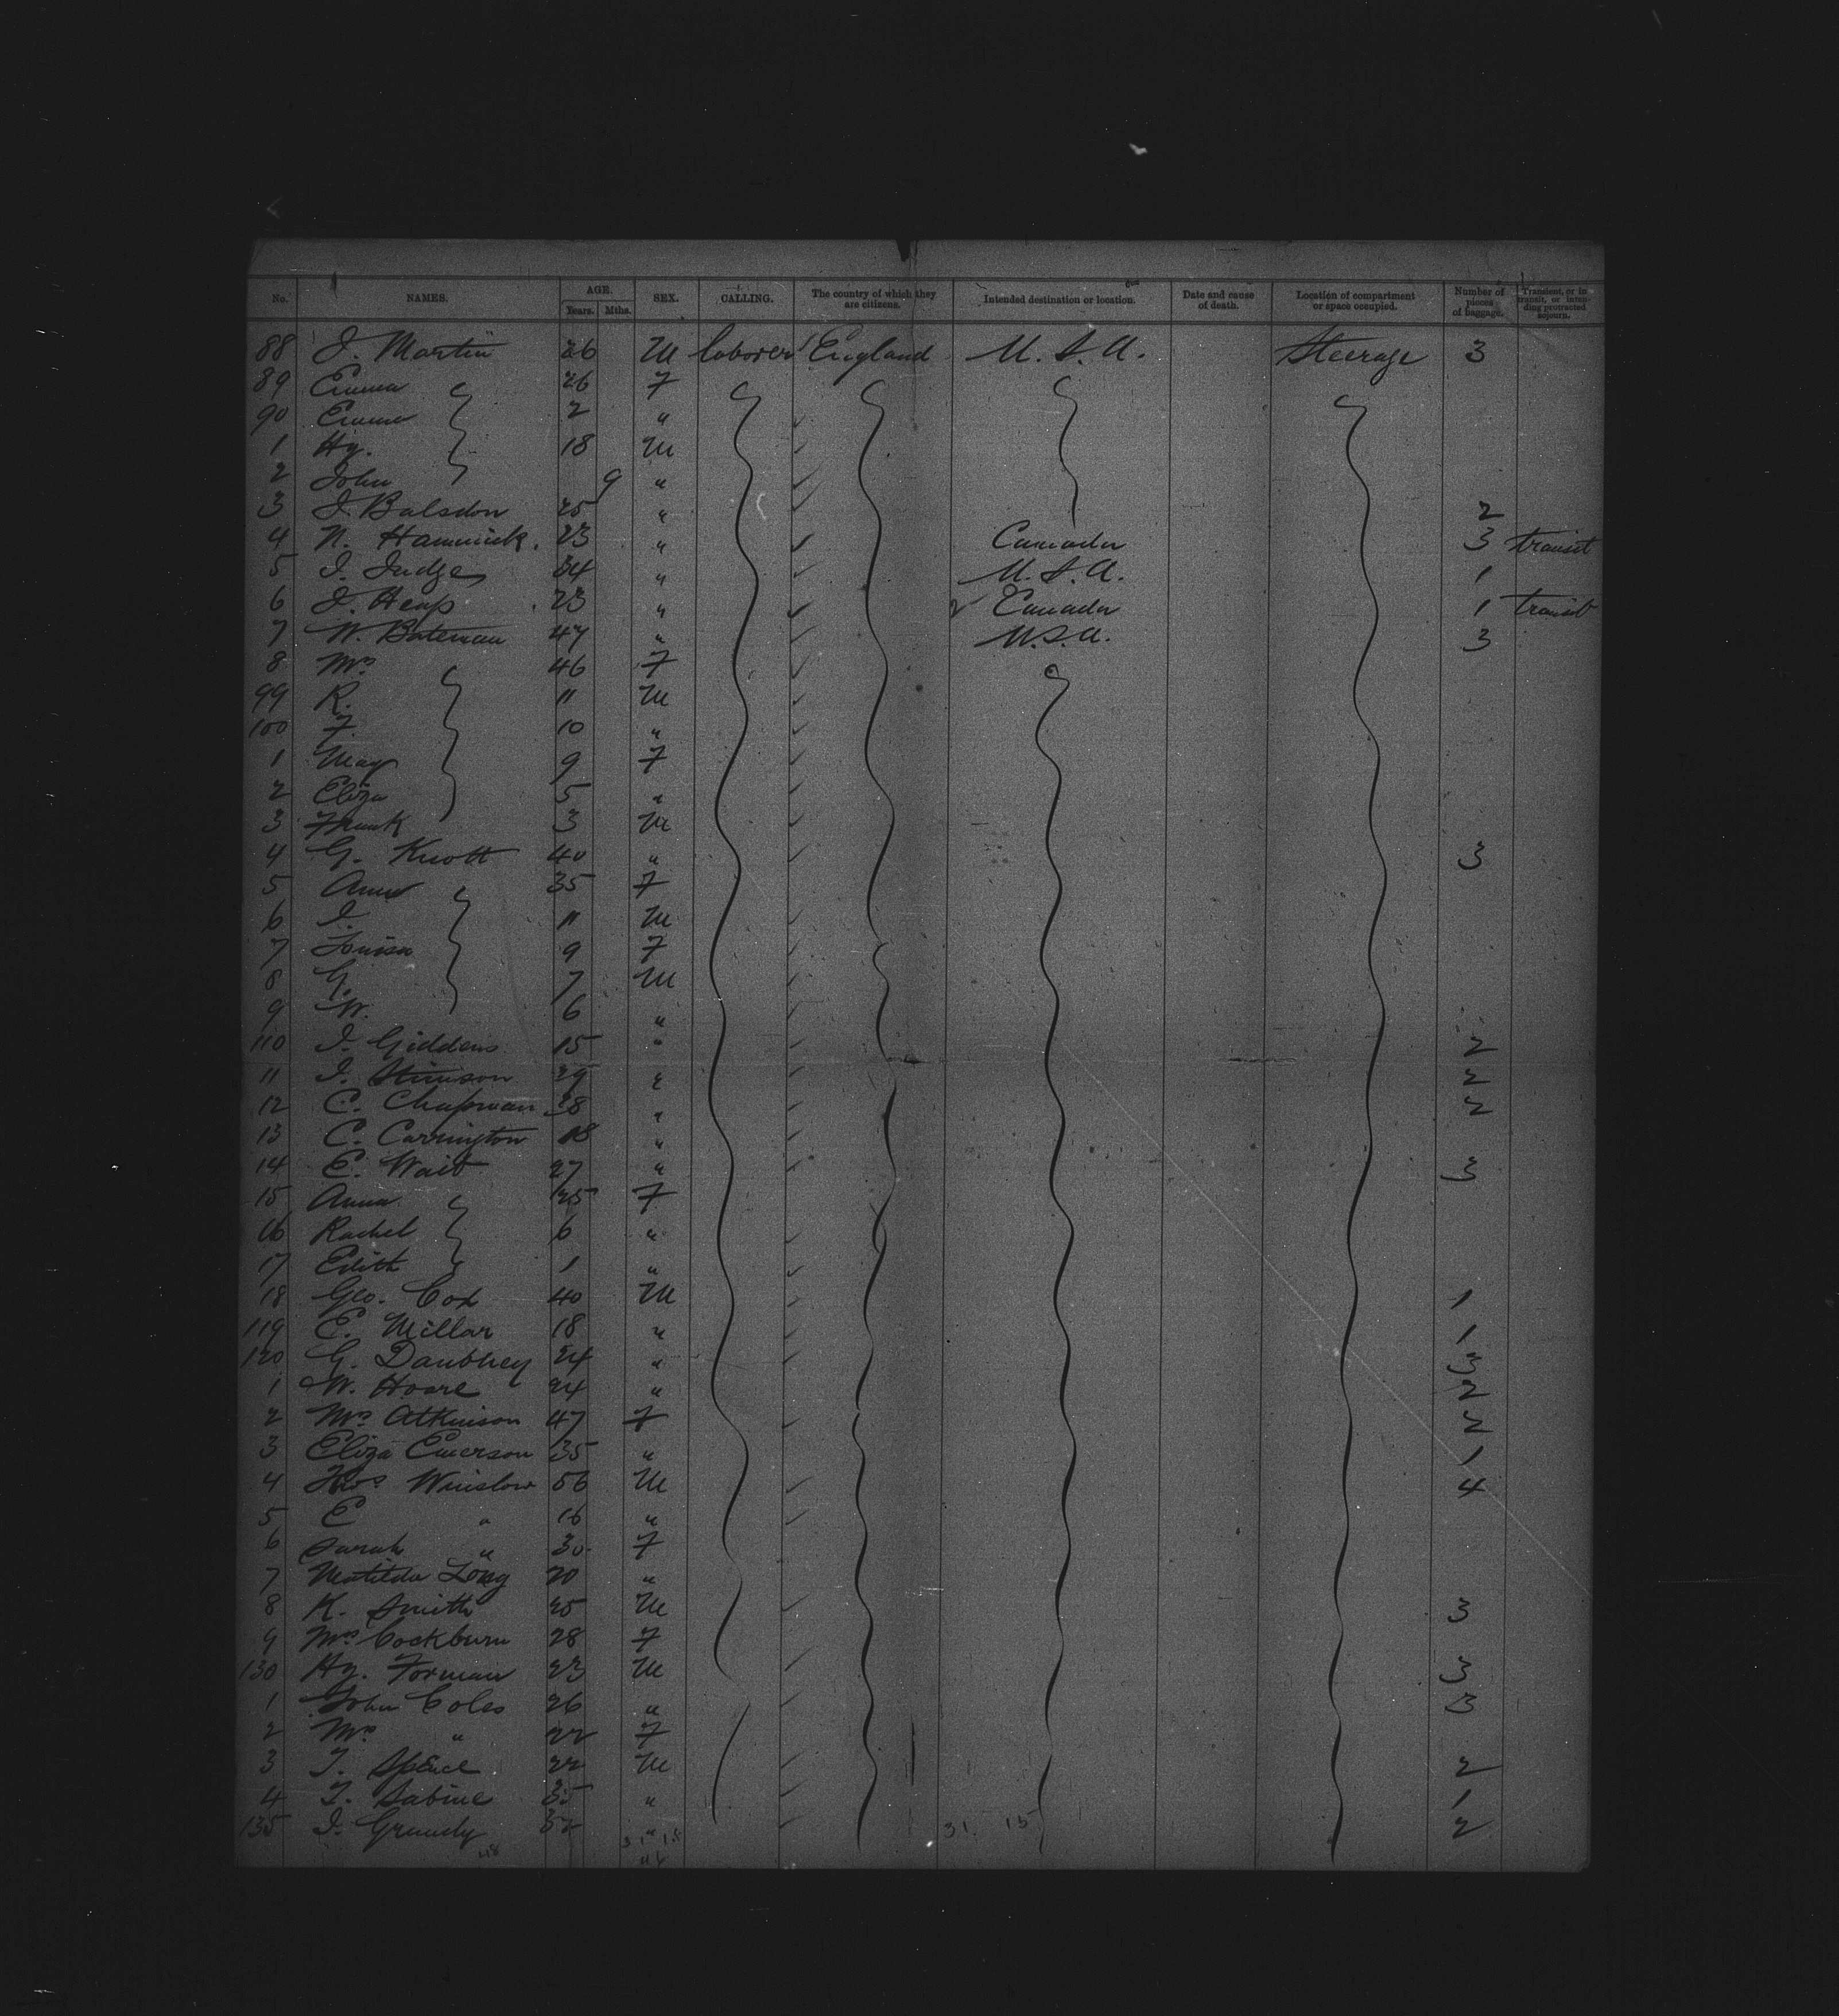 No. NAMES. AGE. Years. Mths. SEX. CALLING. The country of which they are citizens. Intended destination or location. Date and cause of death. Location of compartment or space occupied. Number of pieces of baggage. Transient, or in transit, or intending protracted sojourn.
88 J. Martin 26 M laborer England U.S.A. Steerage 3
89 Emma 26 F
90 Emma 2 "
1 Hy. 18 M
2 John 9 "
3 J. Balsdon 25 " 2
4 N. Hammick. 23 " Canada 3 transit
5 J. Judge 34 " U.S.A. 1
6 J. Heap 23 " Canada 1 transit
7 W. Bateman 47 " U.S.A. 3
8 Mrs 46 F
99 R. 11 M
100 F. 10 "
1 May 9 F
2 Eliza 5 "
3 Frank 3 M
4 G. Knott 40 " 3
5 Anna 35 F
6 J. 11 M
7 Louisa 9 F
8 G. 7 M
9 W. 6 "
110 J. Giddens 15 " 2
11 J. Stimson 29 " 2
12 C. Chapman 38 " 2
13 C. Carrington 18 "
14 E. Wait 27 " 3
15 Anna 25 F
16 Rachel 6 "
17 Edith 1 "
18 Geo. Cox 40 M 1
119 E. Millar 18 " 1
120 G. Daubney 24 " 3
1 W. Hoare 24 " 2
2 Mrs Atkinson 47 F 2
3 Eliza Emerson 35 " 1
4 Thos Winslow 56 M 4
5 E " 16 "
6 Sarah " 30 F
7 Matilda Long 20 "
8 K. Smith 25 M 3
9 Mrs Cockburn 28 F
130 Hy. Forman 23 M 3
1 John Coles 26 " 3
2 Mrs " 22 F
3 T. Spence 22 M 2
4 T. Sabine 35 " 1
135 J. Grundy 32 " 2
31 15